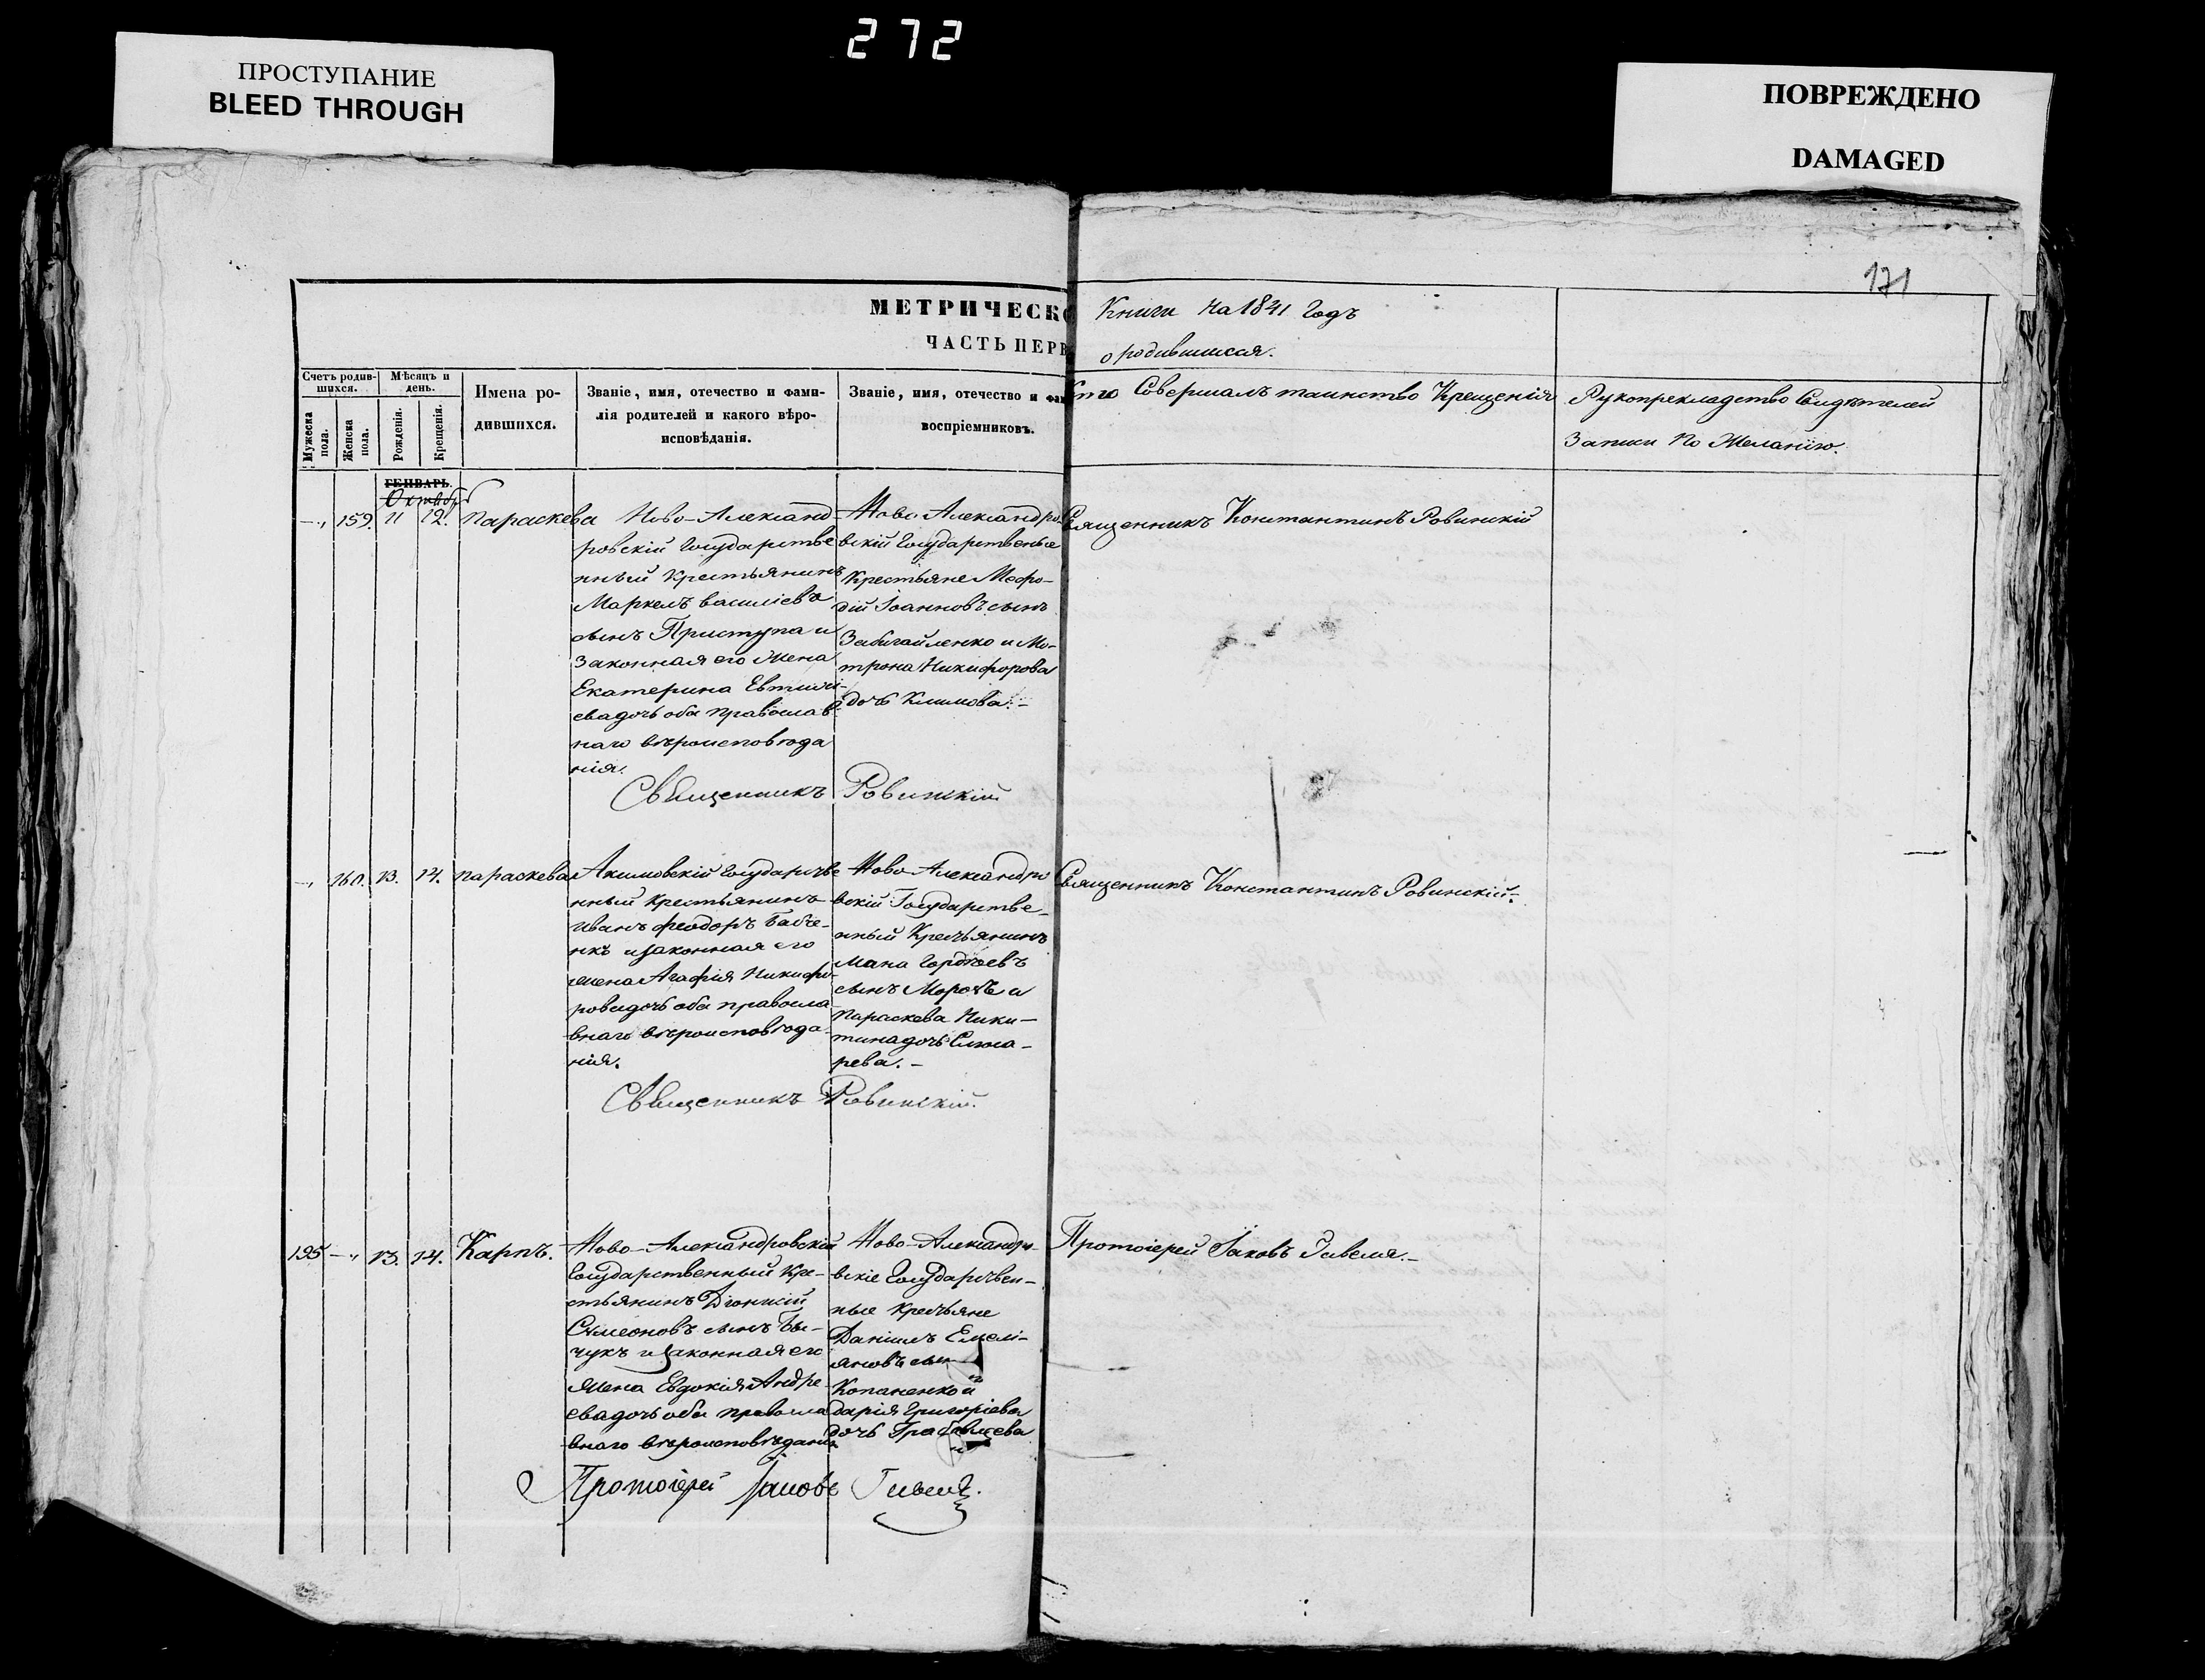 272
ПРОСТУПАНИЕ
BLEED THROUGH
ПОВРЕЖДЕНО
DAMAGED
171
МЕТРИЧЕСКО
ЧАСТЬ ПЕРВ
Книги на 1841 годъ
о родившихся.
Счетъ родив-
шихся.
Мужеска
пола.
Женска
пола.
Мѣсяцъ и
день.
Рожденія.
Крещенія.
Имена ро-
дившихся.
Званіе, имя, отечество и фами-
лія родителей и какого вѣро-
исповѣданія.
Званіе, имя, отечество и фам
воспріемниковъ.
Кто Совершалъ таинство Крещенія
Рукоприкладство Свидѣтелей
Записи по Желанію.
ГЕНВАРЬ.
Октябрь
159. 11 12. Параскева
Ново-Александ-
ровскій Государстве
нный Крестьянинъ
Маркелъ Василіевъ
сынъ Приступа и
Законная его Жена
Екатерина
ева дочь оба Православ
наго вѣроисповѣда
нія.
Ново Александро-
вскій Государственые
Крестьяне Мефо-
дій Іоанновъ сынъ
Забигайленко и Мо-
трона Никифорова
дочь Климова.-
Священникъ Константинъ Ровинскій
Священникъ Ровинскій
160. 13. 14. Параскева
Акимовскій Государстве
нный Крестьянинъ
Иванъ Феодоръ Бабче-
нкъ и законная его
жена Агафія Никифо-
рова дочь оба правосла
внаго вѣроисповѣда-
нія.
Ново-Александро
вскій Государстве-
нный Крестьянинъ
Гордѣевъ
сынъ и
Параскева Ники-
тина дочь
рева.-
Священникъ Константинъ Ровинскій.
Священникъ Ровинскій.
195 13. 14. Карпъ.
Ново-Александровскій
Государственный Кре-
стьянинъ Діонисій
Симеоновъ сынъ Бы-
чукъ и законная его
Жена Евдокія Андре-
ева дочь оба правосла
внаго вѣроисповѣданія
Ново-Александро-
вскіе Государствен-
ные Крестьяне
Даніилъ Емелі-
яновъ сын
Копаненко и
Дарія Григоріева
дочь
Протоіерей Іаковъ Гивеля.-
Протоіерей Іаковъ